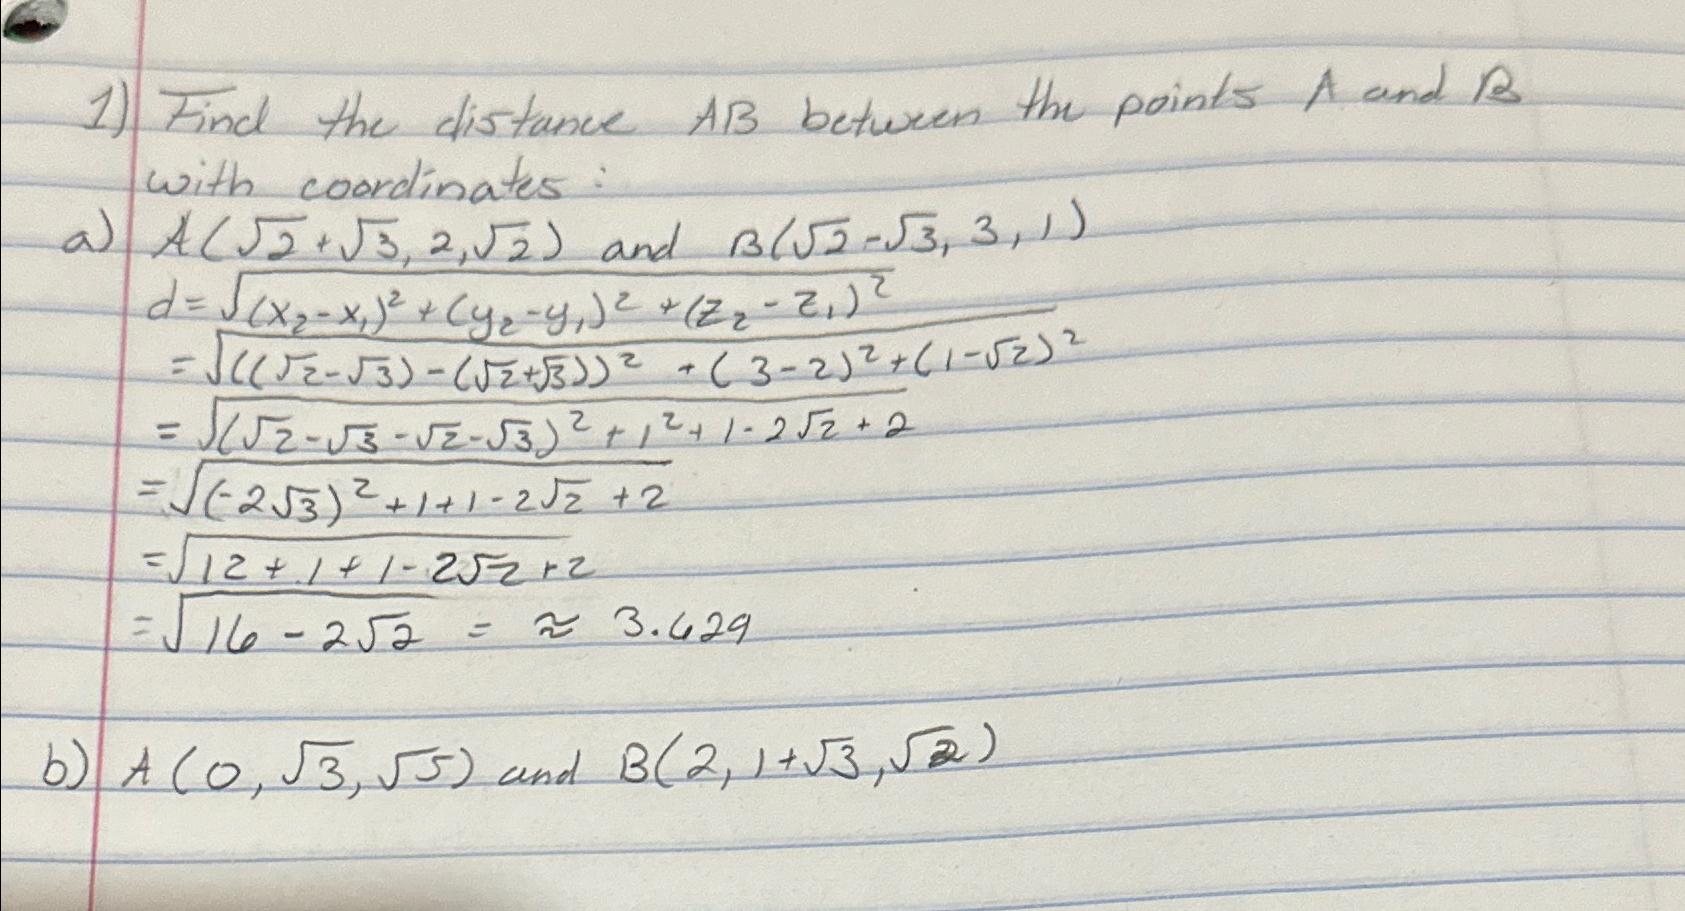 1) Find the distance AB between the points A and B
with coordinates:
a) A(√2+√3, 2, √2) and B(√2-√3, 3, 1)
d=√(x₂-x₁)²+(y₂-y₁)²+(z₂-z₁)²
=√((√2-√3)-(√2+√3))²+(3-2)²+(1-√2)²
=√(√2-√3-√2-√3)²+1²+1-2√2+2
=√(-2√3)²+1+1-2√2+2
=√12+1+1-2√2+2
=√16-2√2 = ≈ 3.629
b) A(0, √3, √5) and B(2, 1+√3, √2)